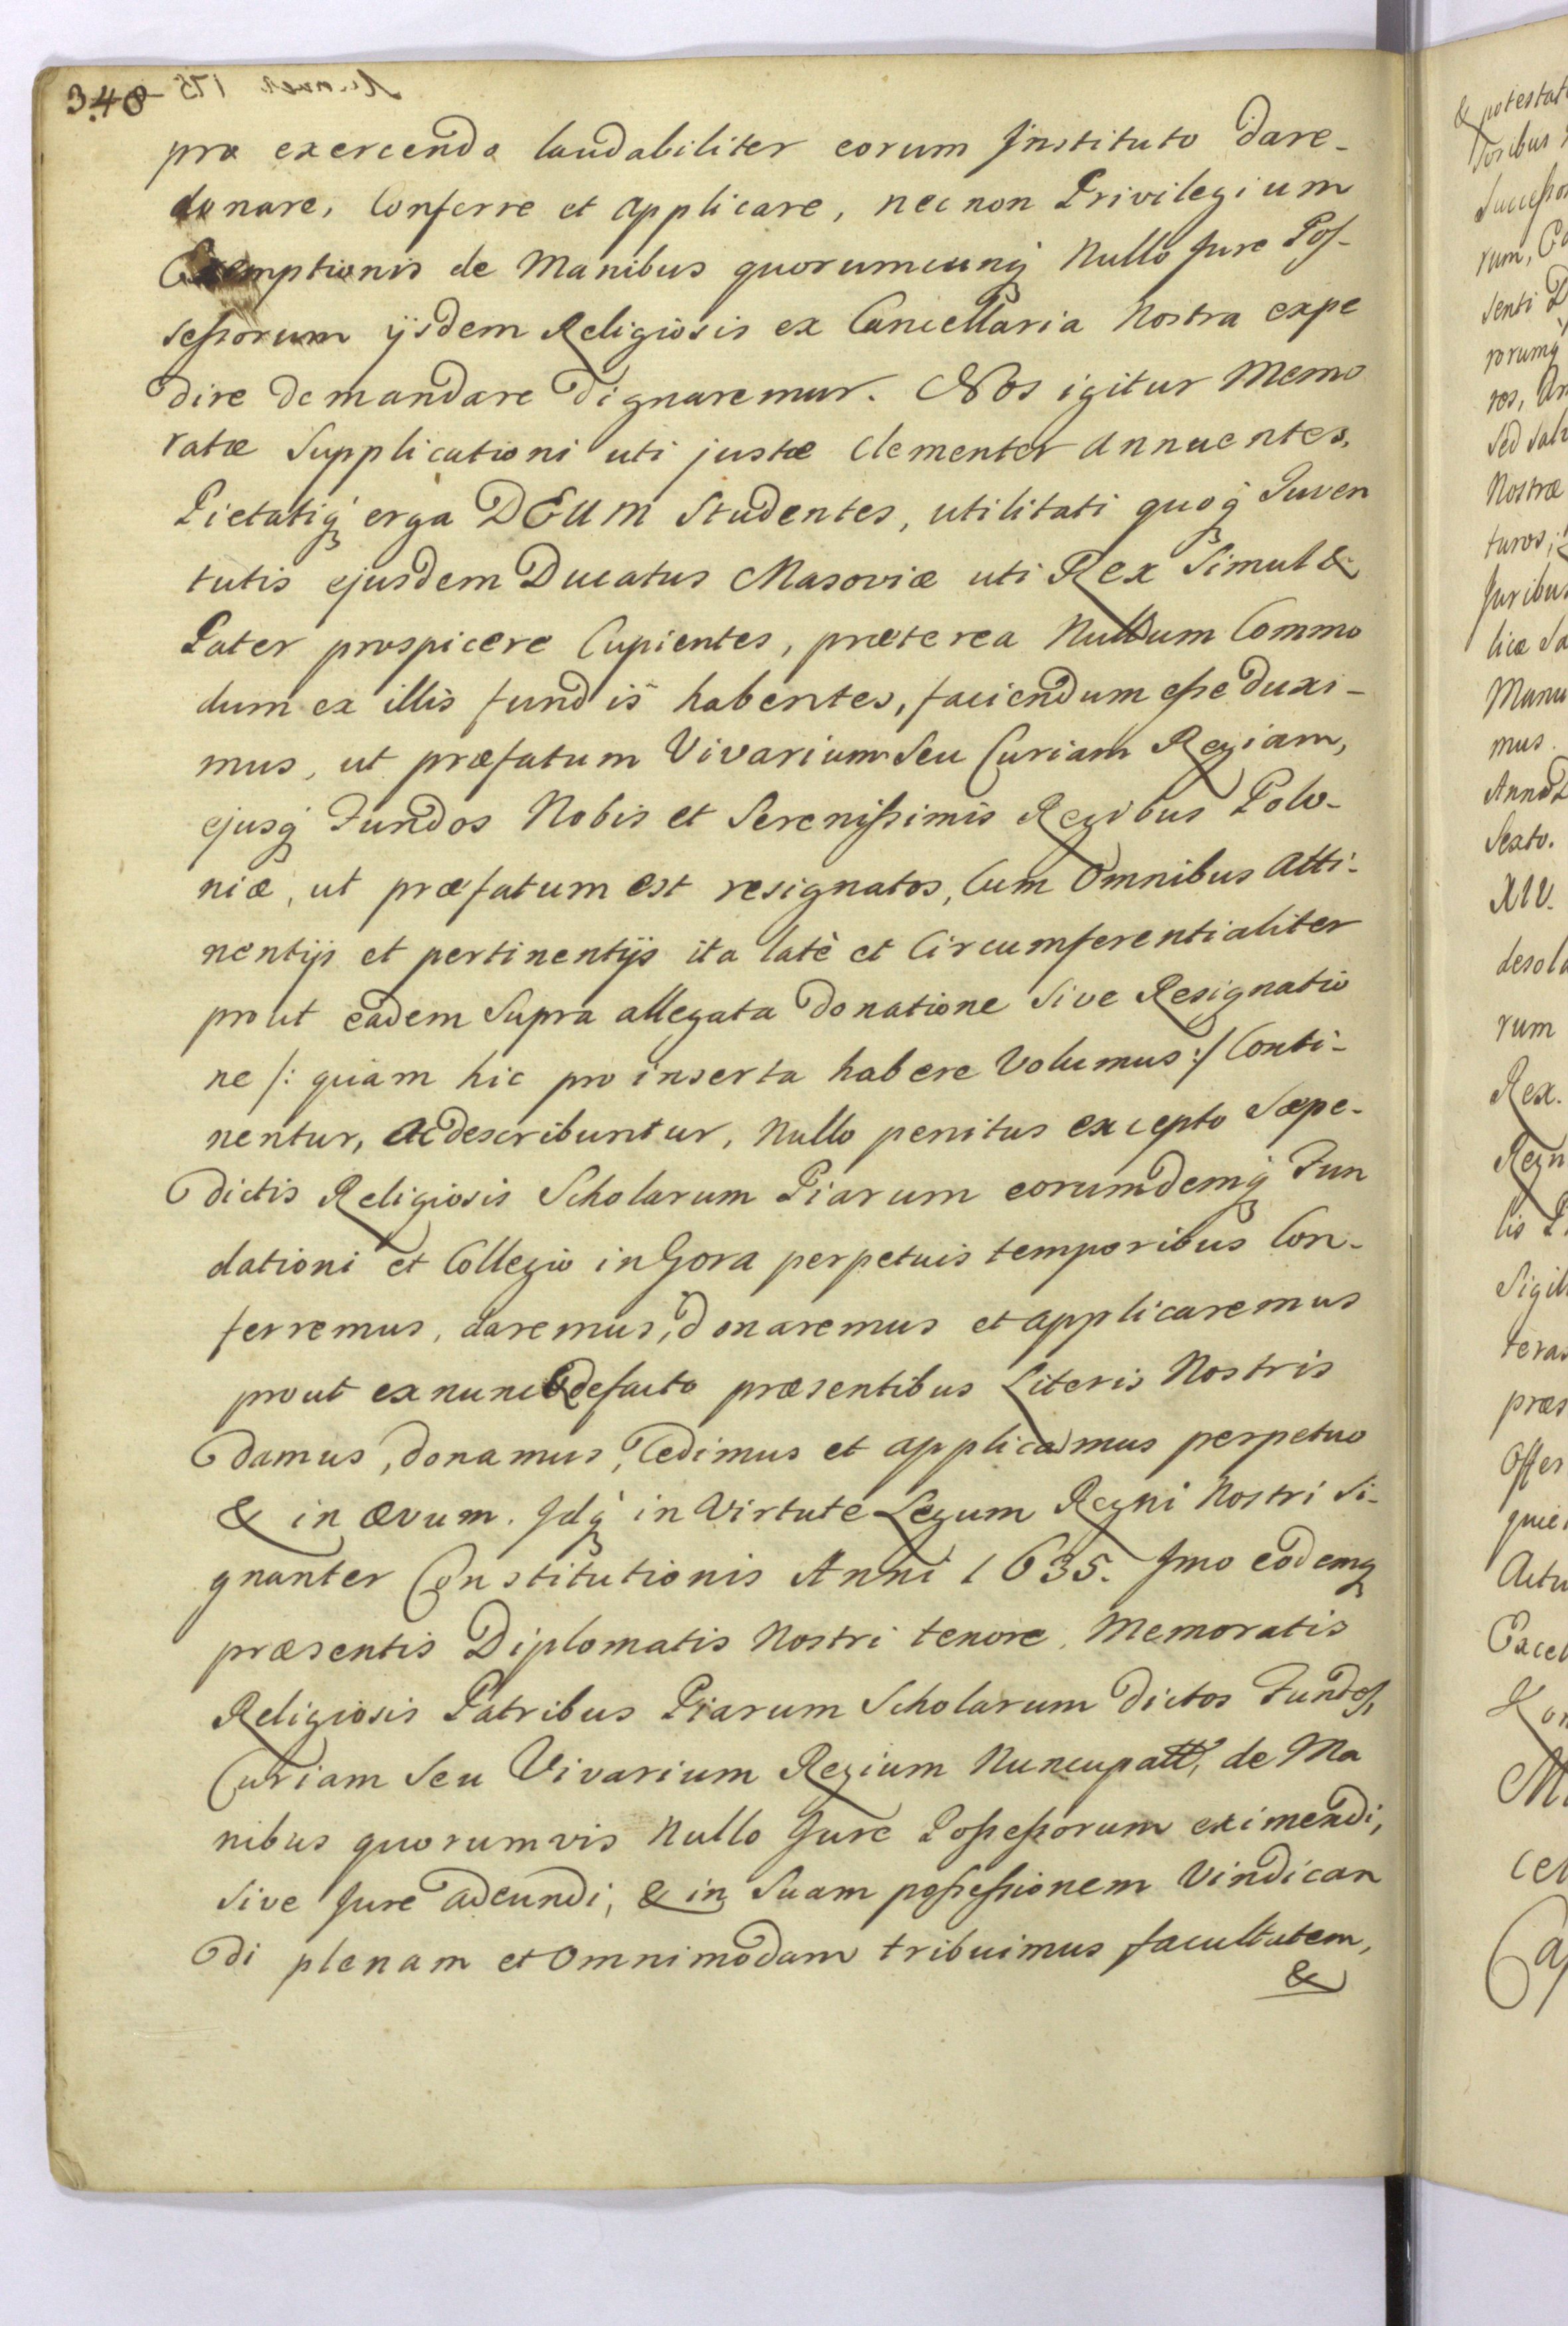 340
pro exercendo laudabiliter eorum Jnstituto dare-
donare, Conferre et applicare, nec non Privilegium
Exemptionis de Manibus quorumcunq; Nullo Jure Pos-
seßorum ijsdem Religiosis ex Cancellaria Nostra expe
dire demandare dignaremur. Nos igitur Memo
ratæ Supplicationi uti justæ Clementer annuentes,
Pietatiq; erga DEUM Studentes, utilitati quoq; Juven
tutis ejusdem Ducatus Masoviæ uti Rex Simul &
Pater prospicere Cupientes, præterea Nullum Commo
dum ex illis fundis habentes, faciendum eße duxi-
mus, ut præfatum Vivarium Seu Curiam Regiam,
ejusq; Fundos Nobis et Serenißimis Regibus Polo-
niæ, ut præfatum est resignatos, Cum Omnibus Atti-
nentijs et pertinentijs ita latè et Circumferentialiter
prout eadem Supra allegata donatione Sive Resignatio
ne /: quam hic pro inserta habere Volumus :/ Conti-
nentur, ac describuntur, Nullo penitus excepto Sæpe-
dictis Religiosis Scholarum Piarum eorumdemq; Fun
dationi et Collegio in Gora perpetuis temporibus Con-
ferremus, daremus, donaremus et applicaremus
prout ex nunc & de facto præsentibus Literis Nostris
damus, donamus, Cedimus et applicamus perpetuo
& in ævum. Jdq; in Virtute Legum Regni Nostri Si-
gnanter Constitutionis Anni 1635. Jmo eodemq;
præsentis Diplomatis Nostri tenore, Memoratis
Religiosis Patribus Piarum Scholarum dictos Fundos,
Curiam Seu Vivarium Regium Nuncupatt, de Ma
nibus quorumvis Nullo Jure Poßeßorum eximendi,
Sive Jure adeundi, & in Suam poßeßionem Vindican
di plenam et Omnimodam tribuimus facultatem,
&